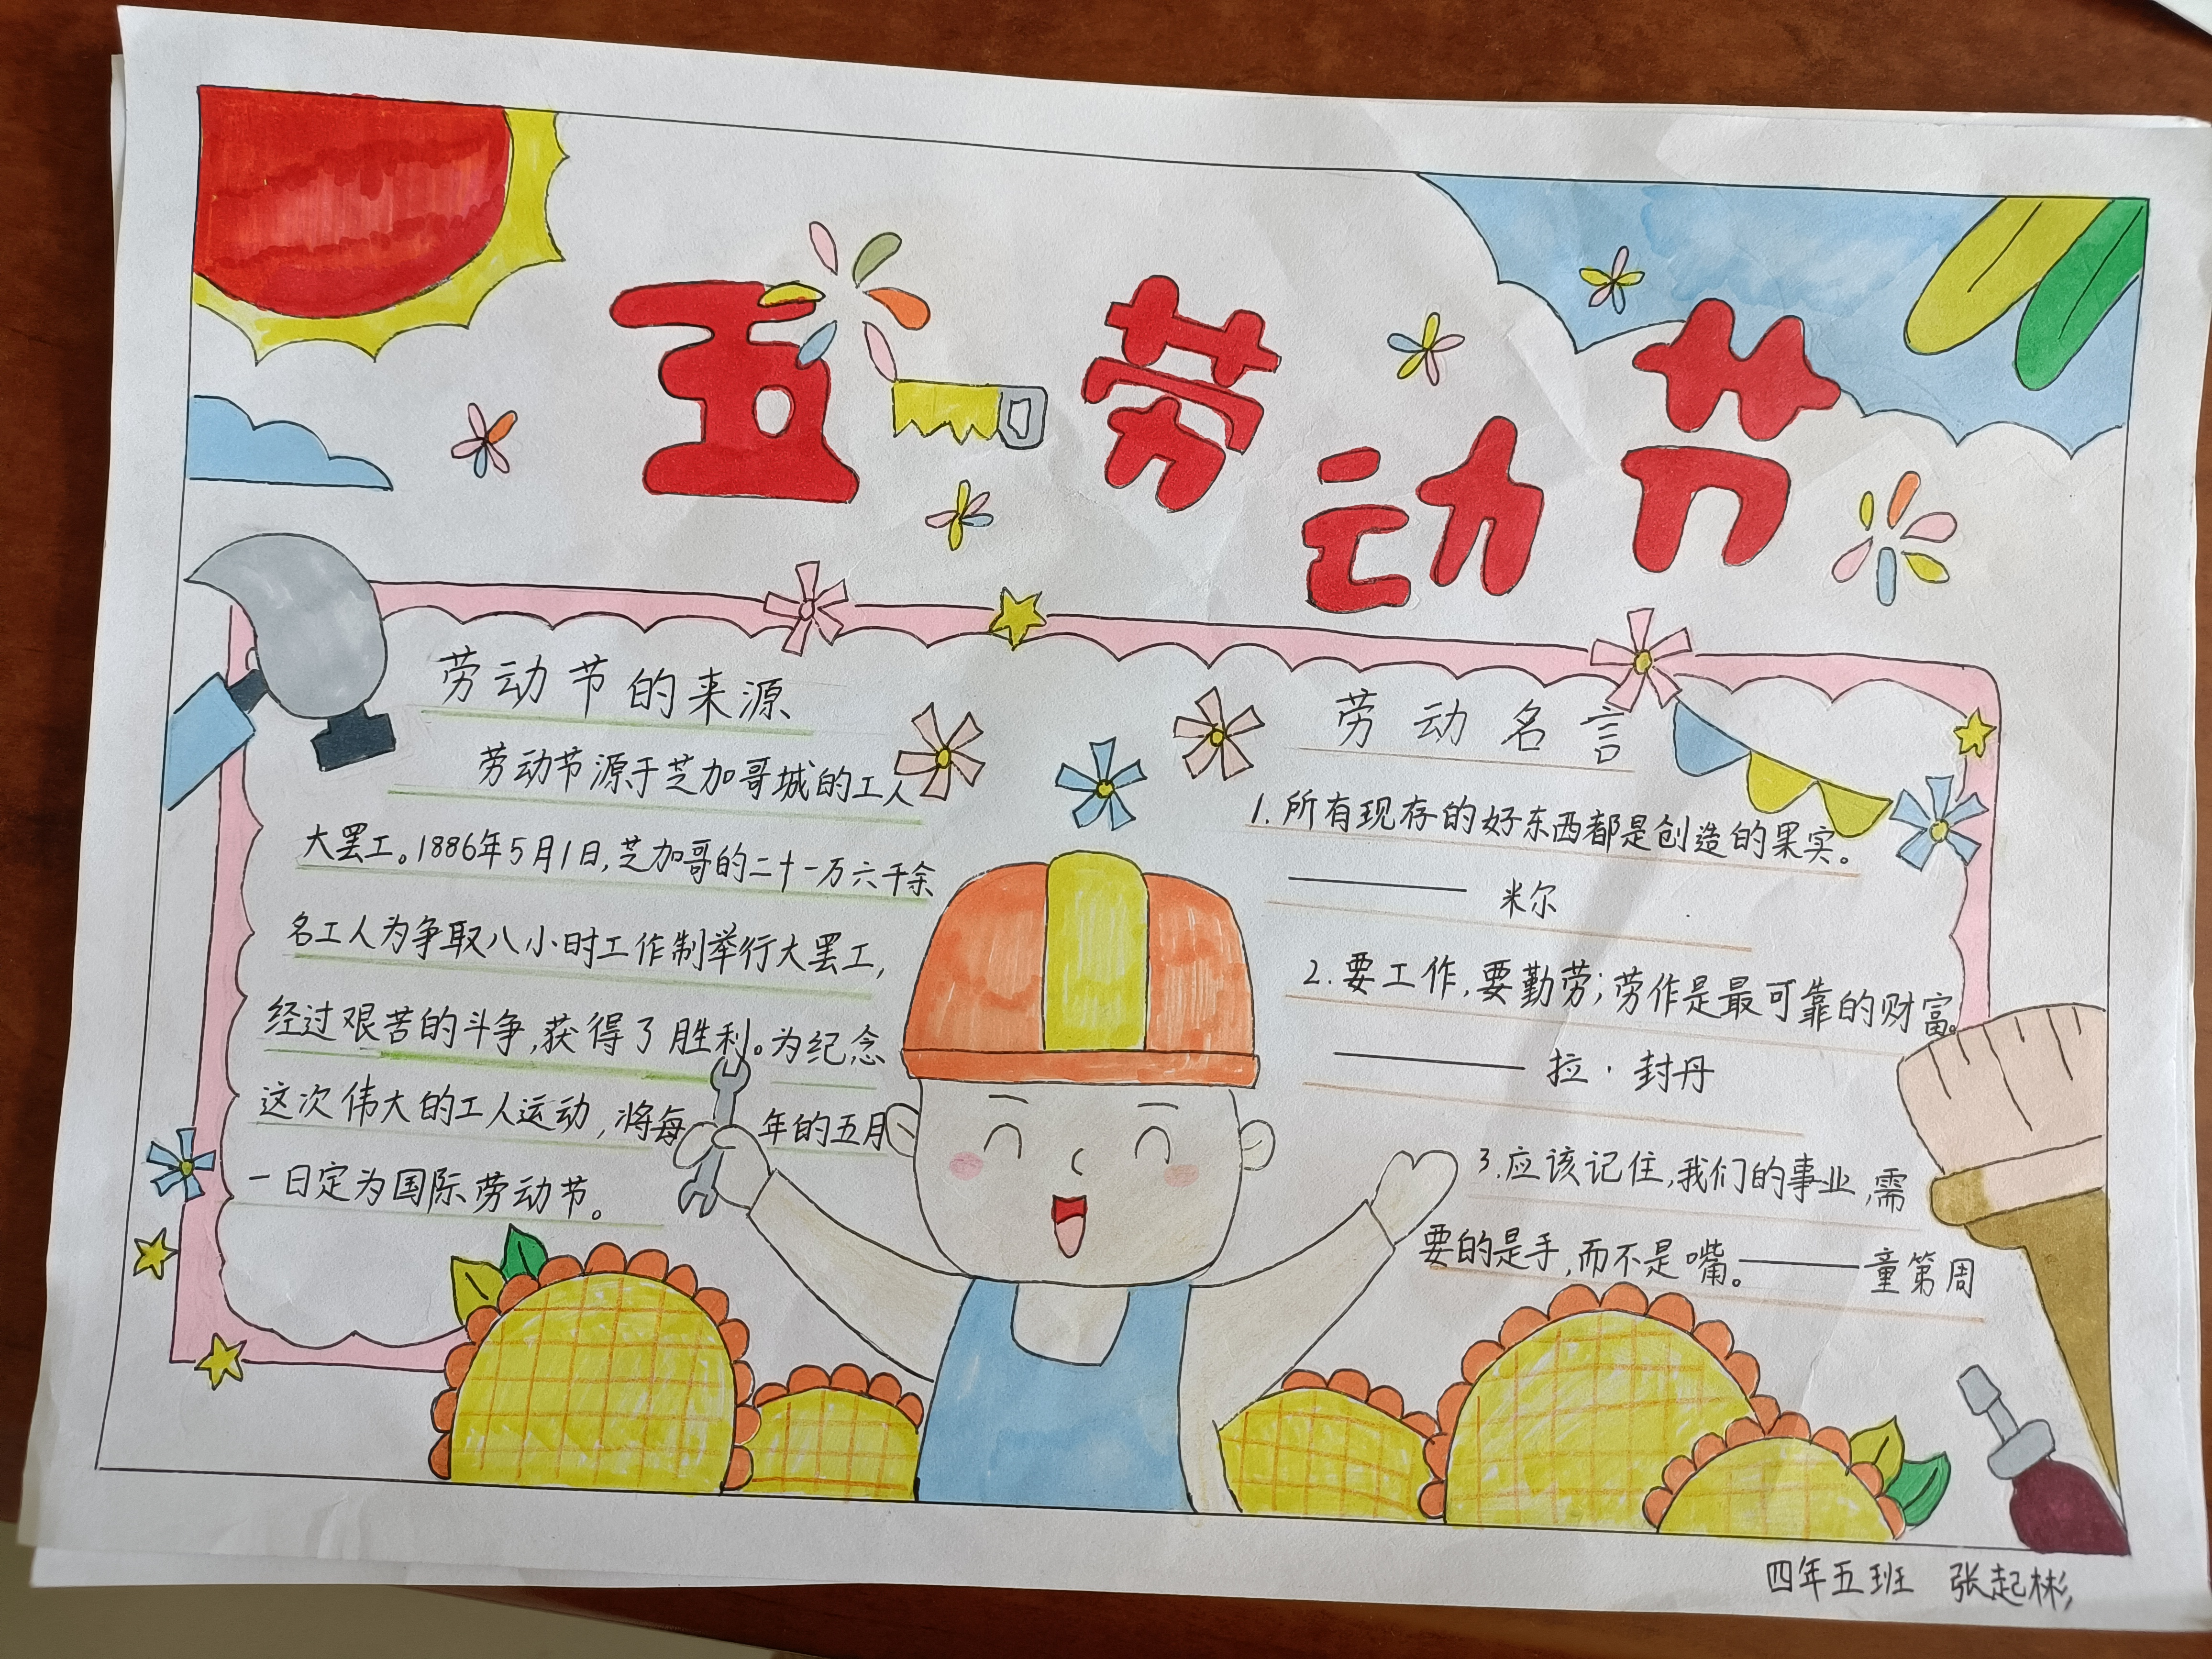 五一劳动节
劳动节的来源
劳动节源于芝加哥城的工人
大罢工。1886年5月1日,芝加哥的二十一万六千余
名工人为争取八小时工作制举行大罢工,
经过艰苦的斗争,获得了胜利。为纪念
这次伟大的工人运动,将每年的五月
一日定为国际劳动节。
劳动名言
1.所有现存的好东西都是创造的果实。
——— 米尔
2.要工作,要勤劳;劳作是最可靠的财富。
——— 拉·封丹
3.应该记住,我们的事业,需
要的是手,而不是嘴。———童第周
四年五班 张起彬